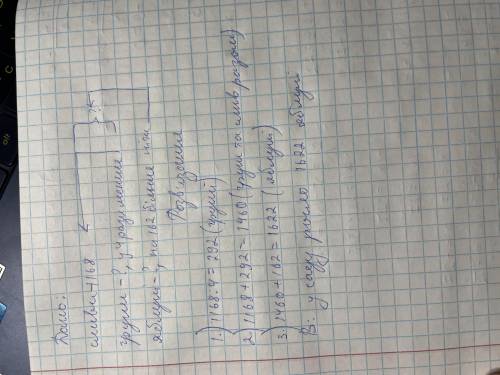 Дано:
сливи – 1168
груши – ?, у 4 рази менше
яблуні – ?, на 162 більше ніж
?
Розв'язання
1.) 1168:4 = 292 (груші)
2.) 1168 + 292 = 1460 (груш та слив разом)
3.) 1460 + 162 = 1622 (яблуні)
В: у саду росло 1622 яблуні